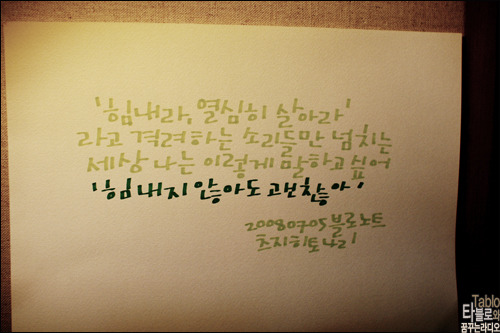 '힘내라, 열심히 살아라'
라고 격려하는 소리들만 넘치는
세상 나는 이렇게 말하고 싶어
'힘 내지 않아도 괜찮아'
20080705 블로노트
츠지히토나리
Tablo
타블로와
꿈꾸는라디오